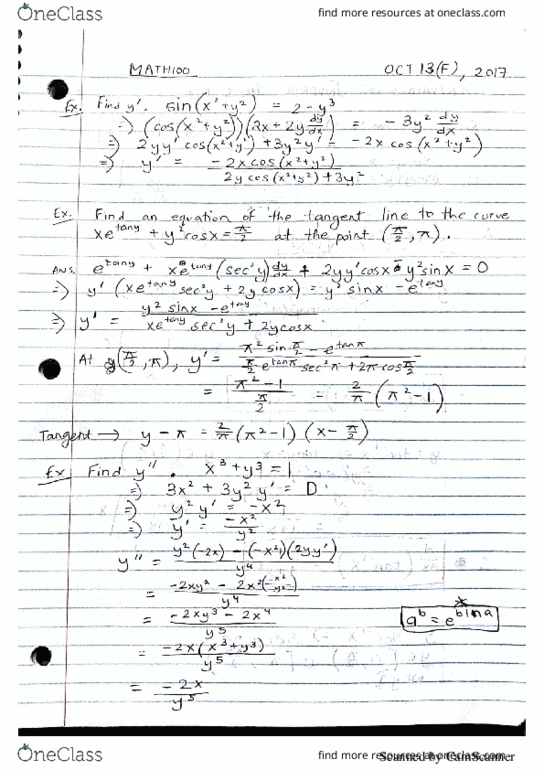 OneClass
find more resources at oneclass.com
MATH100 OCT 13(F), 2017
Ex. Find y'. sin(x²+y²) = 2 - y³
⇒ (cos(x²+y²))(2x + 2y dy/dx) = -3y² dy/dx
⇒ 2yy' cos(x²+y²) + 3y²y' = -2x cos(x²+y²)
⇒ y' = -2x cos(x²+y²) / 2y cos(x²+y²) + 3y²
Ex. Find an equation of the tangent line to the curve
xe^tany + y²cosx = π/2 at the point (π/2, π).
Ans. e^tany + xe^tany (sec²y) dy/dx + 2yy'cosx - y²sinx = 0
⇒ y' (xe^tany sec²y + 2y cosx) = y² sinx - e^tany
⇒ y' = y² sinx - e^tany / xe^tany sec²y + 2ycosx
At y(π/2, π), y' = π² sin π/2 - e^tanπ / π/2 e^tanπ sec²π + 2π cos π/2
= π² - 1 / π/2 = 2/π (π² - 1)
Tangent → y - π = 2/π (π² - 1) (x - π/2)
Ex Find y''. x³ + y³ = 1
⇒ 3x² + 3y² y' = 0
⇒ y² y' = -x²
⇒ y' = -x²/y²
y'' = y²(-2x) - (-x²)(2yy') / y⁴
= -2xy² - 2x²(-x²/y²) / y⁴
= -2xy³ - 2x⁴ / y⁵
a^b = e^(b ln a)
= -2x(x³+y³) / y⁵
= -2x / y⁵
OneClass
find more resources at oneclass.com
Scanned by CamScanner